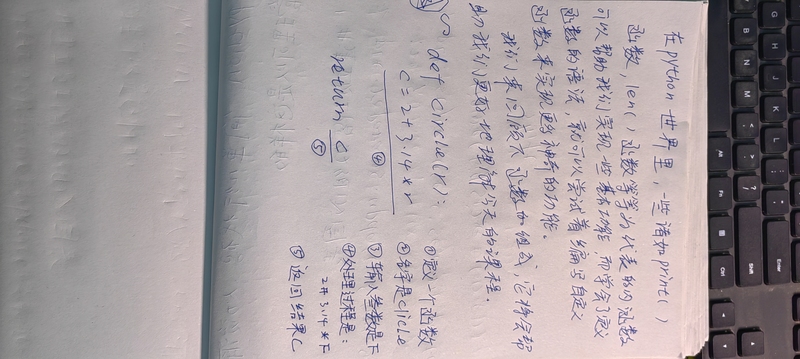 在python世界里，一些诸如print()
函数，len()函数等等为代表的函数
可以帮助我们实现一些基本功能，而学会了定义
函数的语法，就可以尝试着编写自定义
函数来实现更神奇的功能。
我们来回顾 函数如组成，它将会帮
助我们更好地理解今天的课程。
def circle(r):
c=2*3.14*r
④
return c
⑤
①定义一个函数
②名字是clicle
③输入参数是r
④处理过程是：
2*3.14*r
⑤返回结果c